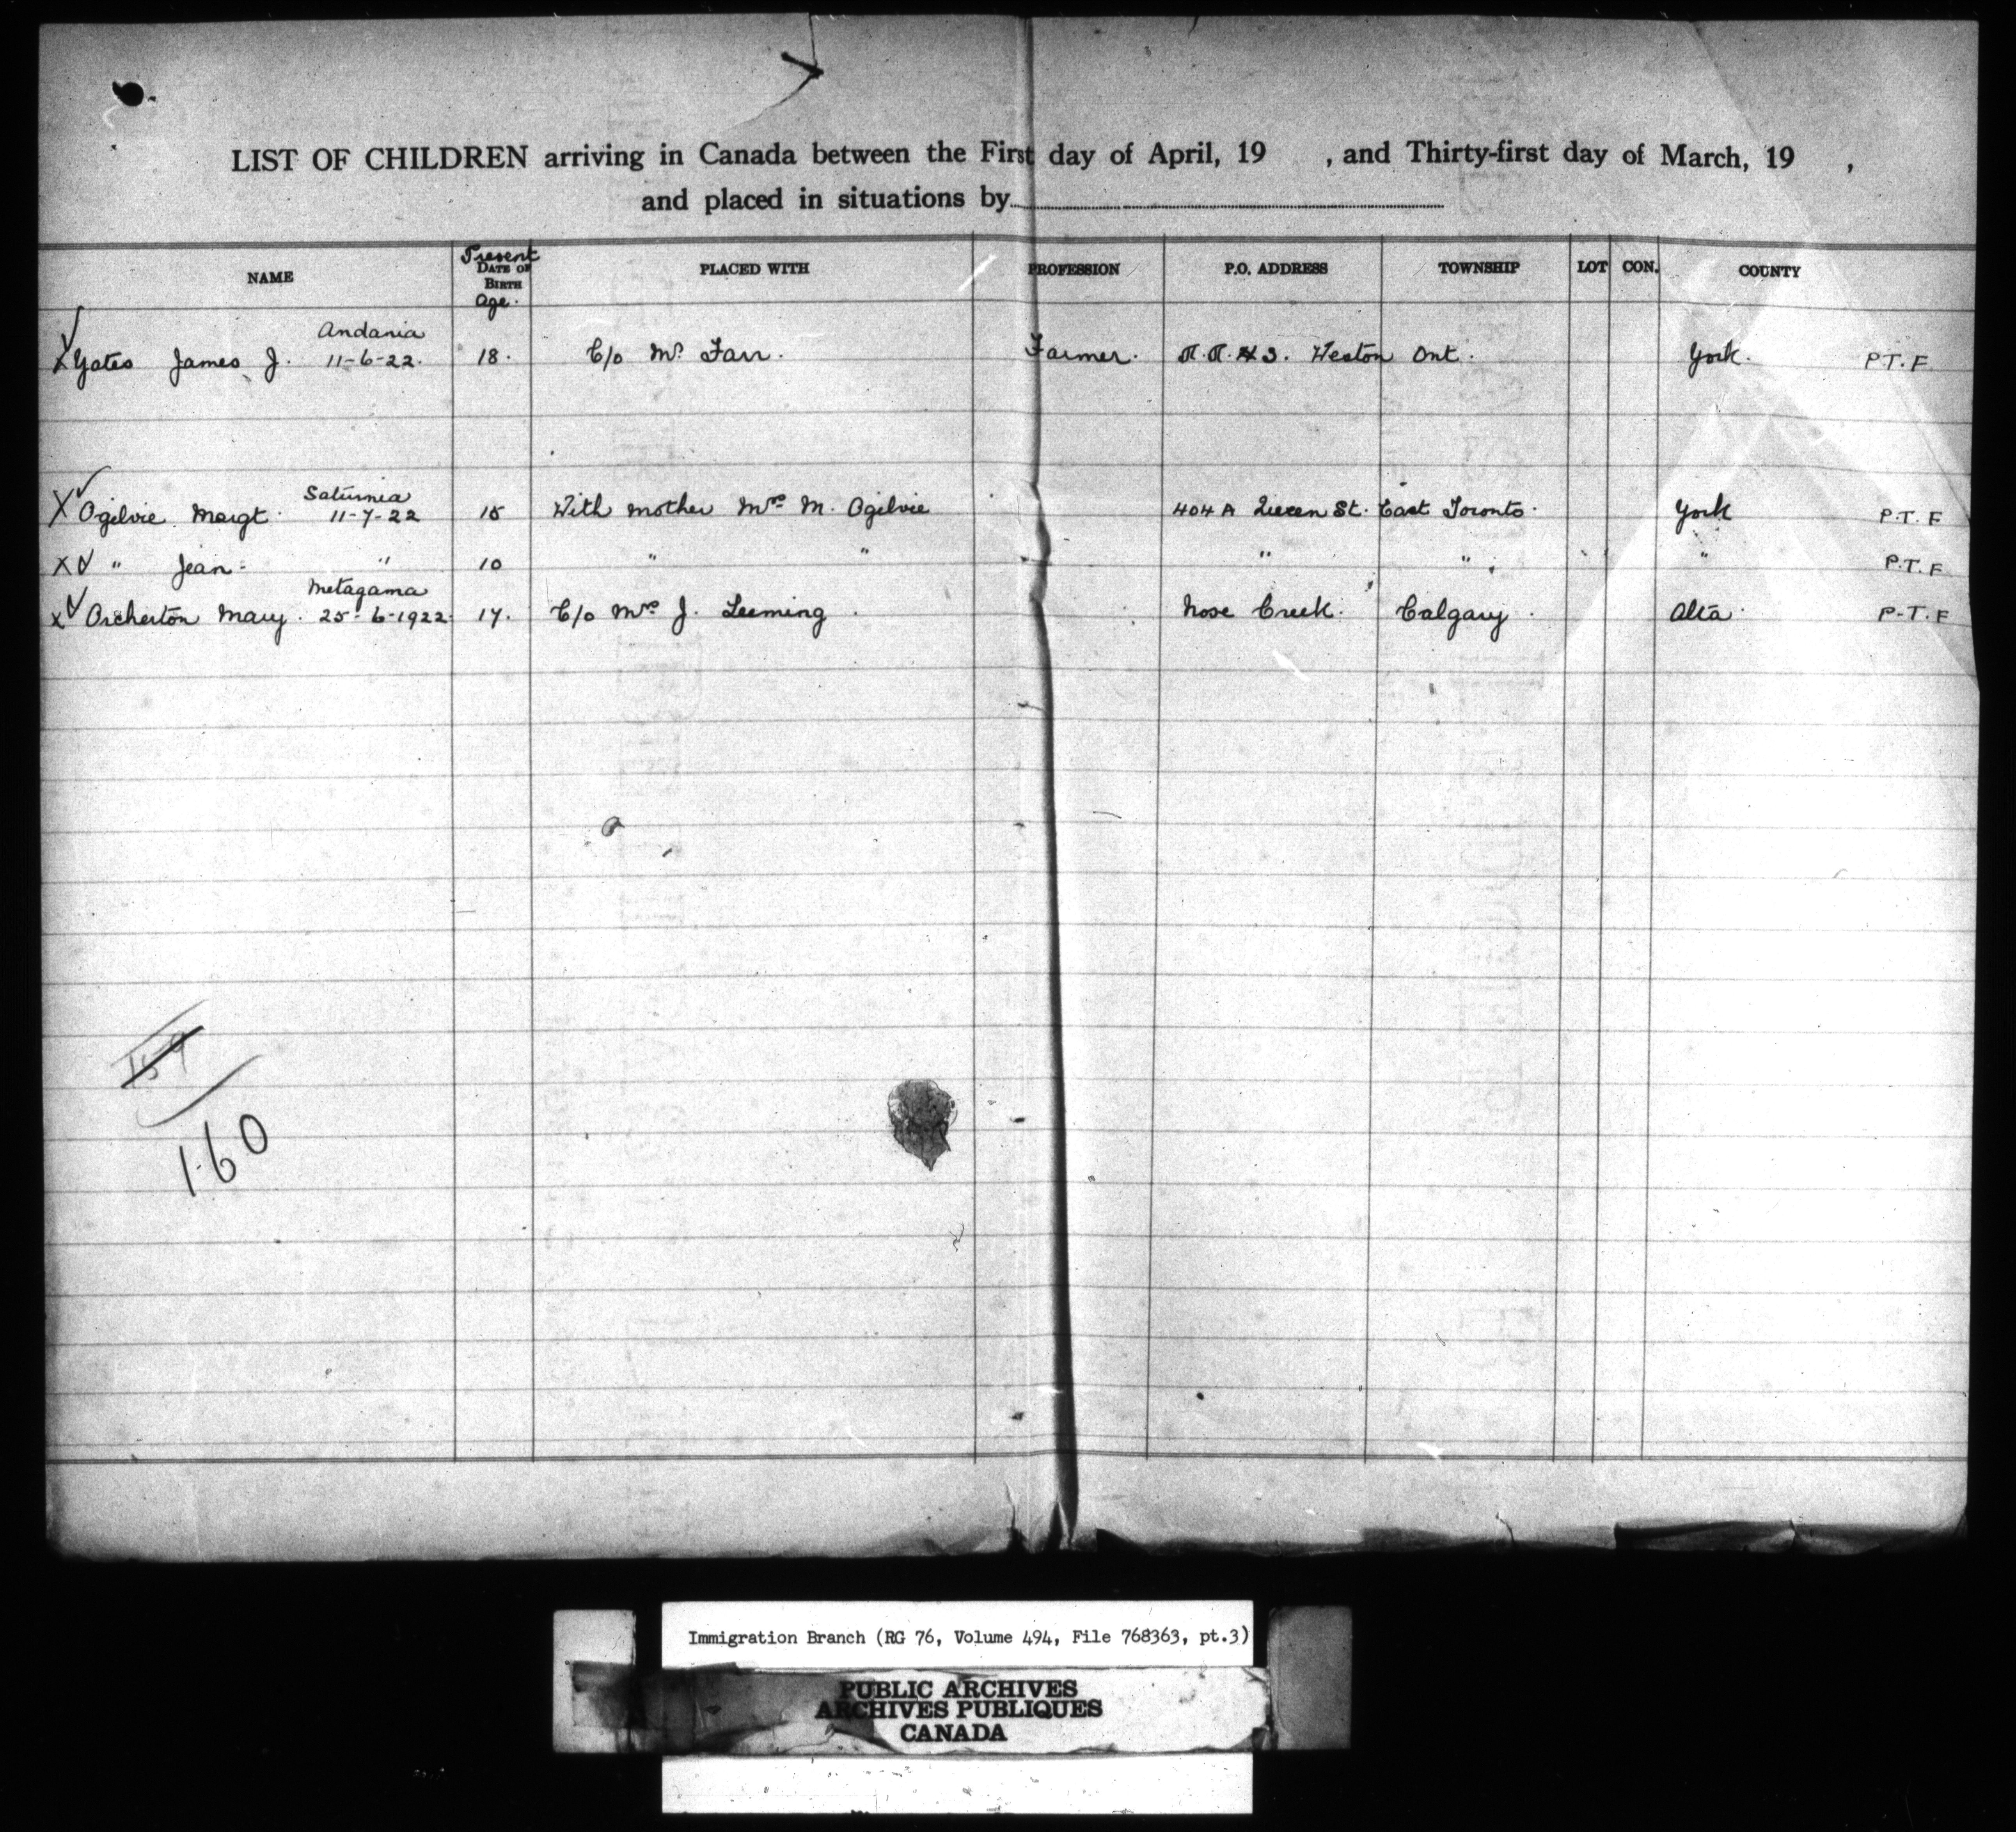 LIST OF CHILDREN arriving in Canada between the First day of April, 19 , and Thirty-first day of March, 19 ,
and placed in situations by
NAME Present DATE OF BIRTH Age. PLACED WITH PROFESSION P.O. ADDRESS TOWNSHIP LOT CON. COUNTY
Andania
X Yates James J. 11-6-22. 18. C/o Mr. Farr. Farmer. R.R. #3. Weston Ont. York. P.T.F
Saturnia
X Ogilvie Margt. 11-7-22 15 With mother Mrs M. Ogilvie 404 A Queen St. East Toronto. York P.T.F
X " Jean " 10 " " " " " P.T.F
Metagama
X Orcherton Mary. 25-6-1922. 17. C/o Mrs J. Leeming Nose Creek. Calgary. Alta. P.T.F
159
160
Immigration Branch (RG 76, Volume 494, File 768363, pt.3)
PUBLIC ARCHIVES
ARCHIVES PUBLIQUES
CANADA